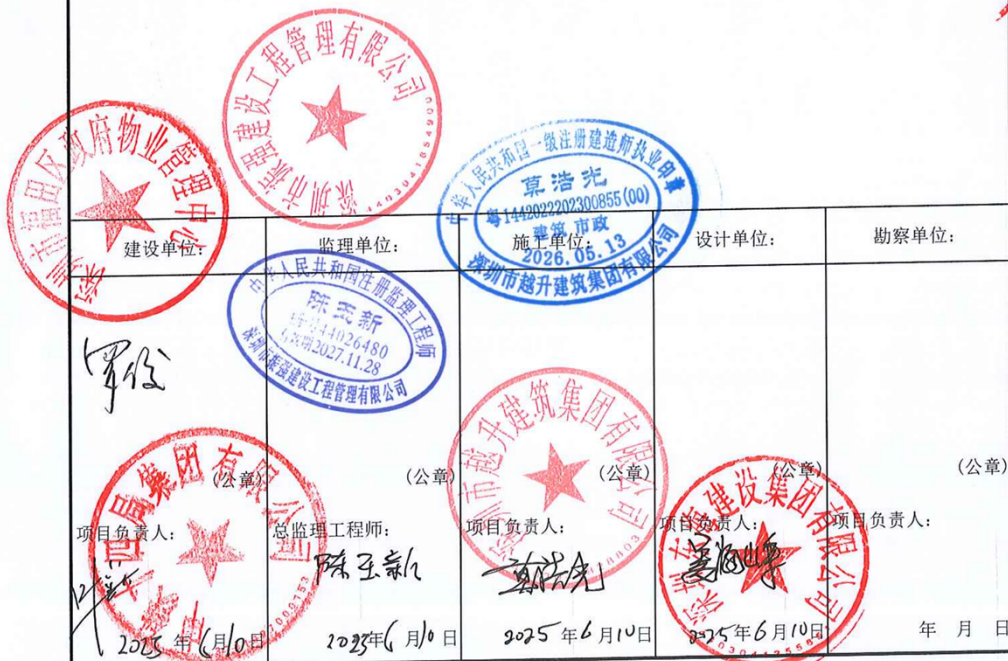 深圳市振强建设工程管理有限公司
深圳市福田区政府物业管理中心
中华人民共和国一级注册建造师执业印章
莫浩光
粤1442022202300855(00)
建筑 市政
2026.05.13
深圳市越升建筑集团有限公司
建设单位: 监理单位: 施工单位: 设计单位: 勘察单位:
中华人民共和国注册监理工程师
陈玉新
44026480
有效期2027.11.28
深圳市振强建设工程管理有限公司
深圳市越升建筑集团有限公司
局集团有限公司
建设集团有限公司
(公章) (公章) (公章) (公章) (公章)
项目负责人: 总监理工程师: 项目负责人: 项目负责人: 项目负责人:
陈玉新 莫浩光
2025年6月10日 2025年6月10日 2025年6月10日 2025年6月10日 年 月 日